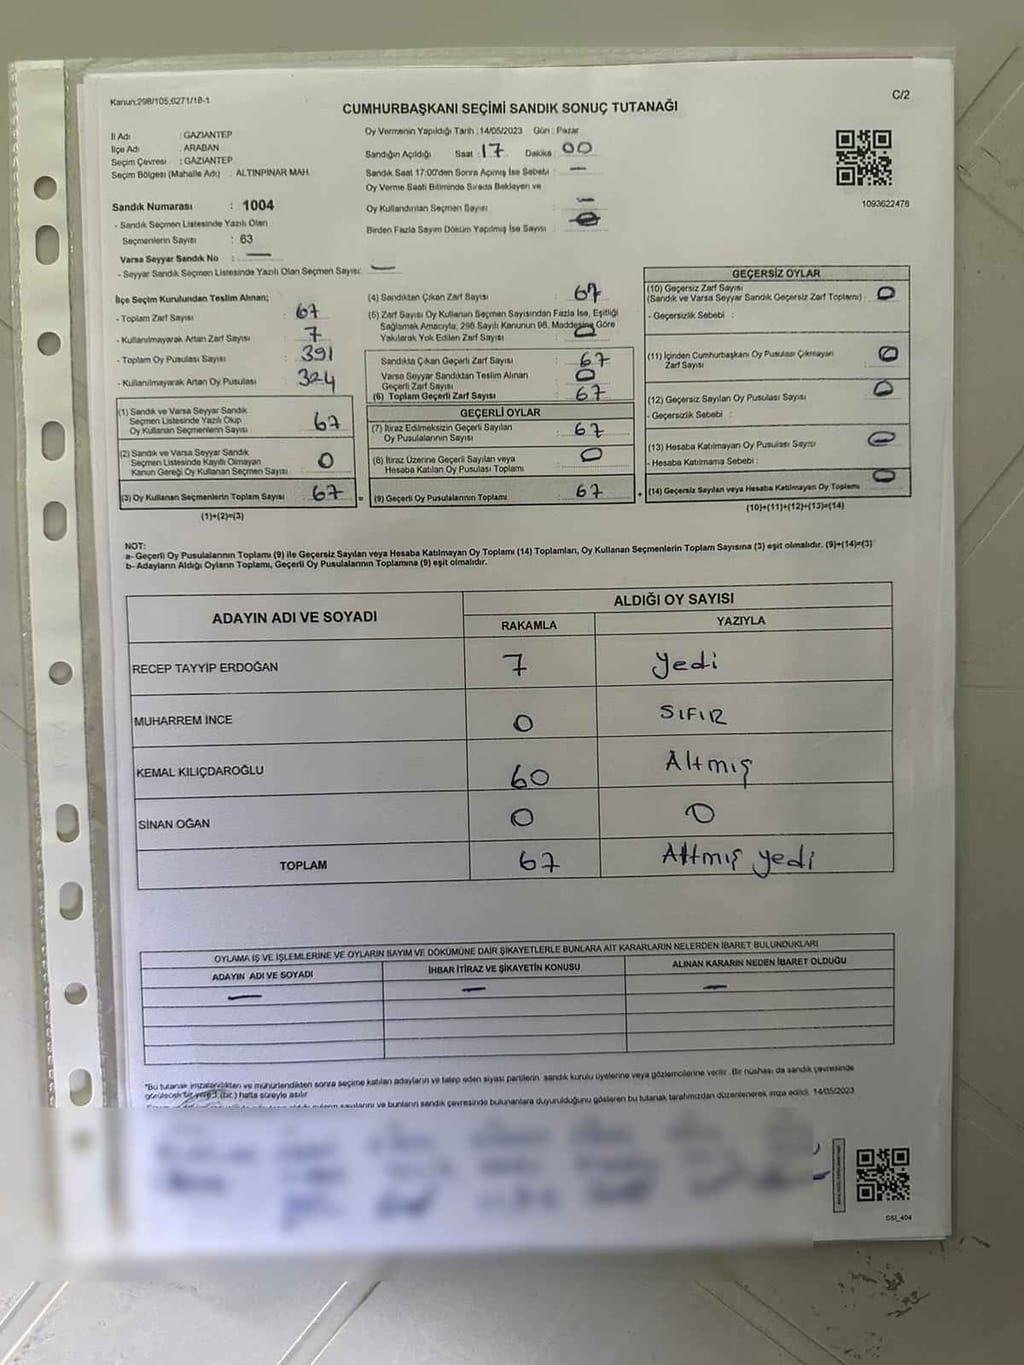 Kanun:298/105,6271/18-1
C/2
CUMHURBAŞKANI SEÇİMİ SANDIK SONUÇ TUTANAĞI
İl Adı : GAZİANTEP
İlçe Adı : ARABAN
Seçim Çevresi : GAZİANTEP
Seçim Bölgesi (Mahalle Adı) : ALTINPINAR MAH.
Sandık Numarası : 1004
- Sandık Seçmen Listesinde Yazılı Olan
Seçmenlerin Sayısı : 63
Varsa Seyyar Sandık No : —
- Seyyar Sandık Seçmen Listesinde Yazılı Olan Seçmen Sayısı: —
Oy Vermenin Yapıldığı Tarih : 14/05/2023 Gün : Pazar
Sandığın Açıldığı Saat : 17 Dakika : 00
Sandık Saat 17:00'den Sonra Açımış İse Sebebi : —
Oy Verme Saati Bitiminde Sırada Bekleyen ve
Oy Kullandırılan Seçmen Sayısı : —
Birden Fazla Sayım Döküm Yapılmış İse Sayısı :
1093622478
İlçe Seçim Kurulundan Teslim Alınan;
- Toplam Zarf Sayısı : 67
- Kullanılmayarak Artan Zarf Sayısı : 7
- Toplam Oy Pusulası Sayısı : 391
- Kullanılmayarak Artan Oy Pusulası : 324
(1) Sandık ve Varsa Seyyar Sandık
Seçmen Listesinde Yazılı Olup
Oy Kullanan Seçmenlerin Sayısı : 67
(2) Sandık ve Varsa Seyyar Sandık
Seçmen Listesinde Kayıtlı Olmayan
Kanun Gereği Oy Kullanan Seçmen Sayısı : 0
(3) Oy Kullanan Seçmenlerin Toplam Sayısı : 67
(1)+(2)=(3)
(4) Sandıktan Çıkan Zarf Sayısı : 67
(5) Zarf Sayısı Oy Kullanan Seçmen Sayısından Fazla İse, Eşitliği
Sağlamak Amacıyla; 298 Sayılı Kanunun 98. Maddesine Göre
Yakılarak Yok Edilen Zarf Sayısı : 0
Sandıkta Çıkan Geçerli Zarf Sayısı : 67
Varsa Seyyar Sandıktan Teslim Alınan
Geçerli Zarf Sayısı : 0
(6) Toplam Geçerli Zarf Sayısı : 67
GEÇERLİ OYLAR
(7) İtiraz Edilmeksizin Geçerli Sayılan
Oy Pusulalarının Sayısı : 67
(8) İtiraz Üzerine Geçerli Sayılan veya
Hesaba Katılan Oy Pusulası Toplamı : 0
(9) Geçerli Oy Pusulalarının Toplamı : 67
GEÇERSİZ OYLAR
(10) Geçersiz Zarf Sayısı
(Sandık ve Varsa Seyyar Sandık Geçersiz Zarf Toplamı) : 0
- Geçersizlik Sebebi :
(11) İçinden Cumhurbaşkanı Oy Pusulası Çıkmayan
Zarf Sayısı : 0
(12) Geçersiz Sayılan Oy Pusulası Sayısı : 0
- Geçersizlik Sebebi :
(13) Hesaba Katılmayan Oy Pusulası Sayısı : 0
- Hesaba Katılmama Sebebi :
(14) Geçersiz Sayılan veya Hesaba Katılmayan Oy Toplamı : 0
(10)+(11)+(12)+(13)=(14)
NOT:
a- Geçerli Oy Pusulalarının Toplamı (9) ile Geçersiz Sayılan veya Hesaba Katılmayan Oy Toplamı (14) Toplamları, Oy Kullanan Seçmenlerin Toplam Sayısına (3) eşit olmalıdır. (9)+(14)=(3)
b- Adayların Aldığı Oyların Toplamı, Geçerli Oy Pusulalarının Toplamına (9) eşit olmalıdır.
ADAYIN ADI VE SOYADI
ALDIĞI OY SAYISI
RAKAMLA YAZIYLA
RECEP TAYYİP ERDOĞAN 7 Yedi
MUHARREM İNCE 0 SIFIR
KEMAL KILIÇDAROĞLU 60 Altmış
SİNAN OĞAN 0 0
TOPLAM 67 Altmış yedi
OYLAMA İŞ VE İŞLEMLERİNE VE OYLARIN SAYIM VE DÖKÜMÜNE DAİR ŞİKAYETLERLE BUNLARA AİT KARARLARIN NELERDEN İBARET BULUNDUKLARI
ADAYIN ADI VE SOYADI İHBAR İTİRAZ VE ŞİKAYETİN KONUSU ALINAN KARARIN NEDEN İBARET OLDUĞU
— — —
*Bu tutanak imzalandıktan ve mühürlendikten sonra seçime katılan adayların ve talep eden siyasi partilerin sandık kurulu üyelerine veya gözlemcilerine verilir. Bir nüshası da sandık çevresinde
görülecek bir yere (bir) hafta süreyle asılır.
sayılarını ve bunların sandık çevresinde bulunanlara duyurulduğunu gösteren bu tutanak tarafımızdan düzenlenerek imza edildi. 14/05/2023
SSİ_404